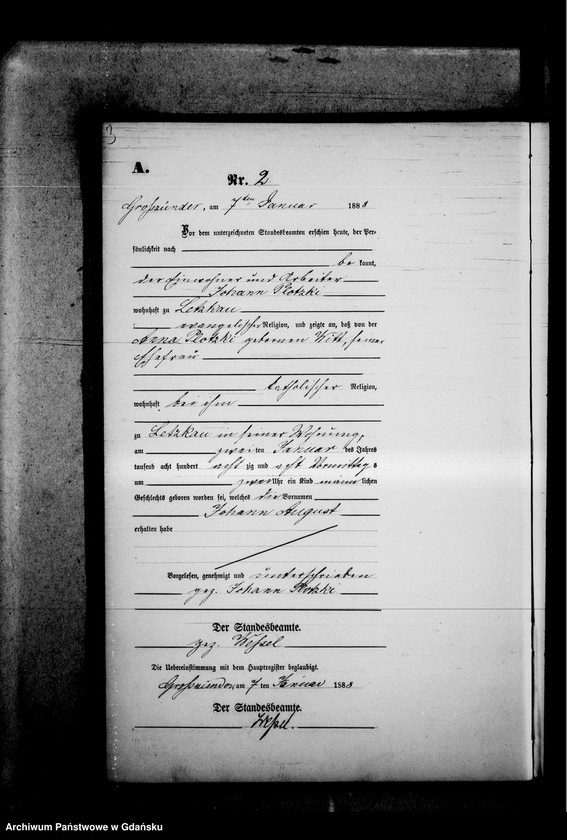 3
A.
Nr. 2
Großzünder, am 7ten Januar 1888
Vor dem unterzeichneten Standesbeamten erschien heute, der Per-
sönlichkeit nach
bekannt,
der Einwohner und Arbeiter
Johann Plotzki
wohnhaft zu Letzkau
evangelischer Religion, und zeigte an, daß von der
Anna Plotzki gebornen Witt, seiner
Ehefrau
katholischer Religion,
wohnhaft bei ihm
zu Letzkau in seiner Wohnung,
am zweiten Januar des Jahres
tausend acht hundert achtzig und acht Vormittags
um zwei Uhr ein Kind männlichen
Geschlechts geboren worden sei, welches die Vornamen
Johann August
erhalten habe
Vorgelesen, genehmigt und unterschrieben
gez. Johann Plotzki
Der Standesbeamte.
gez. Wessel
Die Uebereinstimmung mit dem Hauptregister beglaubigt.
Großzünder, am 7 ten Januar 1888
Der Standesbeamte.
Wessel.
Archiwum Państwowe w Gdańsku